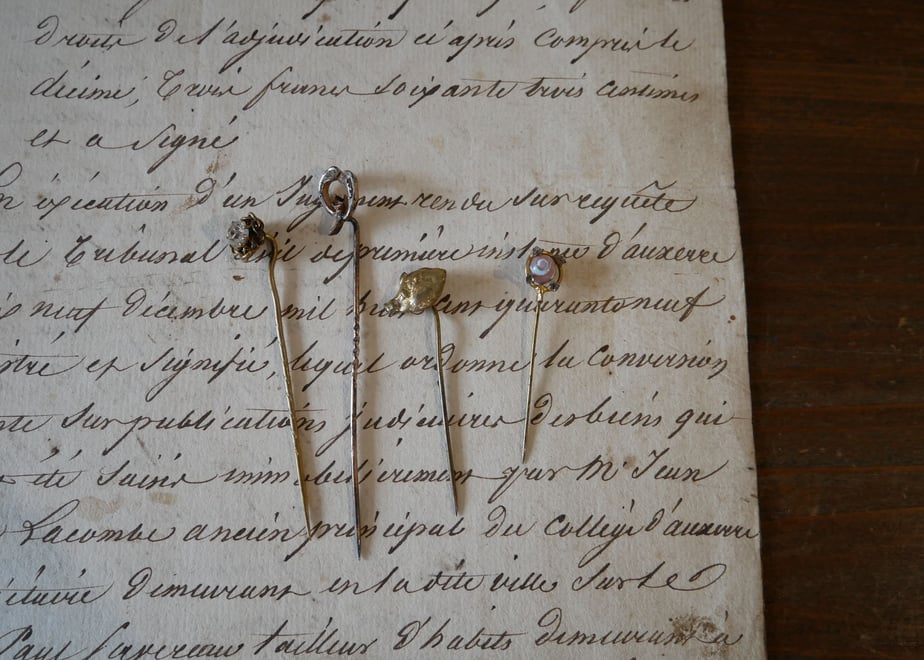 droits de l'adjudication ci après compris le
décime, Trois francs soixante trois centimes
et a signé
En exécution d'un Jugement rendu sur requête
le Tribunal civil de première instance d'auxerre
neuf décembre mil huit cent quarante neuf
et signifié, lequel ordonne la conversion
sur publications judiciaires des biens qui
été saisis immobilièrement par Mr Jean
Lacombe ancien principal du collège d'auxerre
demeurant en la dite ville sur le
Paul tailleur d'habits demeurant à